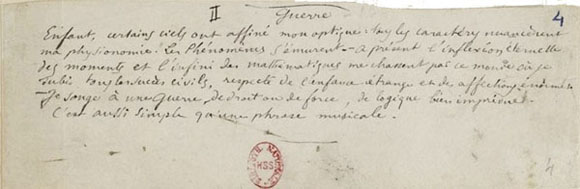 II Guerre 4
Enfant, certains ciels ont affiné mon optique : tous les caractères nuancèrent
ma physionomie. Les Phénomènes s'émurent. — À présent l'inflexion éternelle
des moments et l'infini des mathématiques me chassent par ce monde où je
subis tous les succès civils, respecté de l'enfance étrange et des affections énormes.
— Je songe à une Guerre, de droit ou de force, de logique bien imprévue.
C'est aussi simple qu'une phrase musicale.
MSS
4